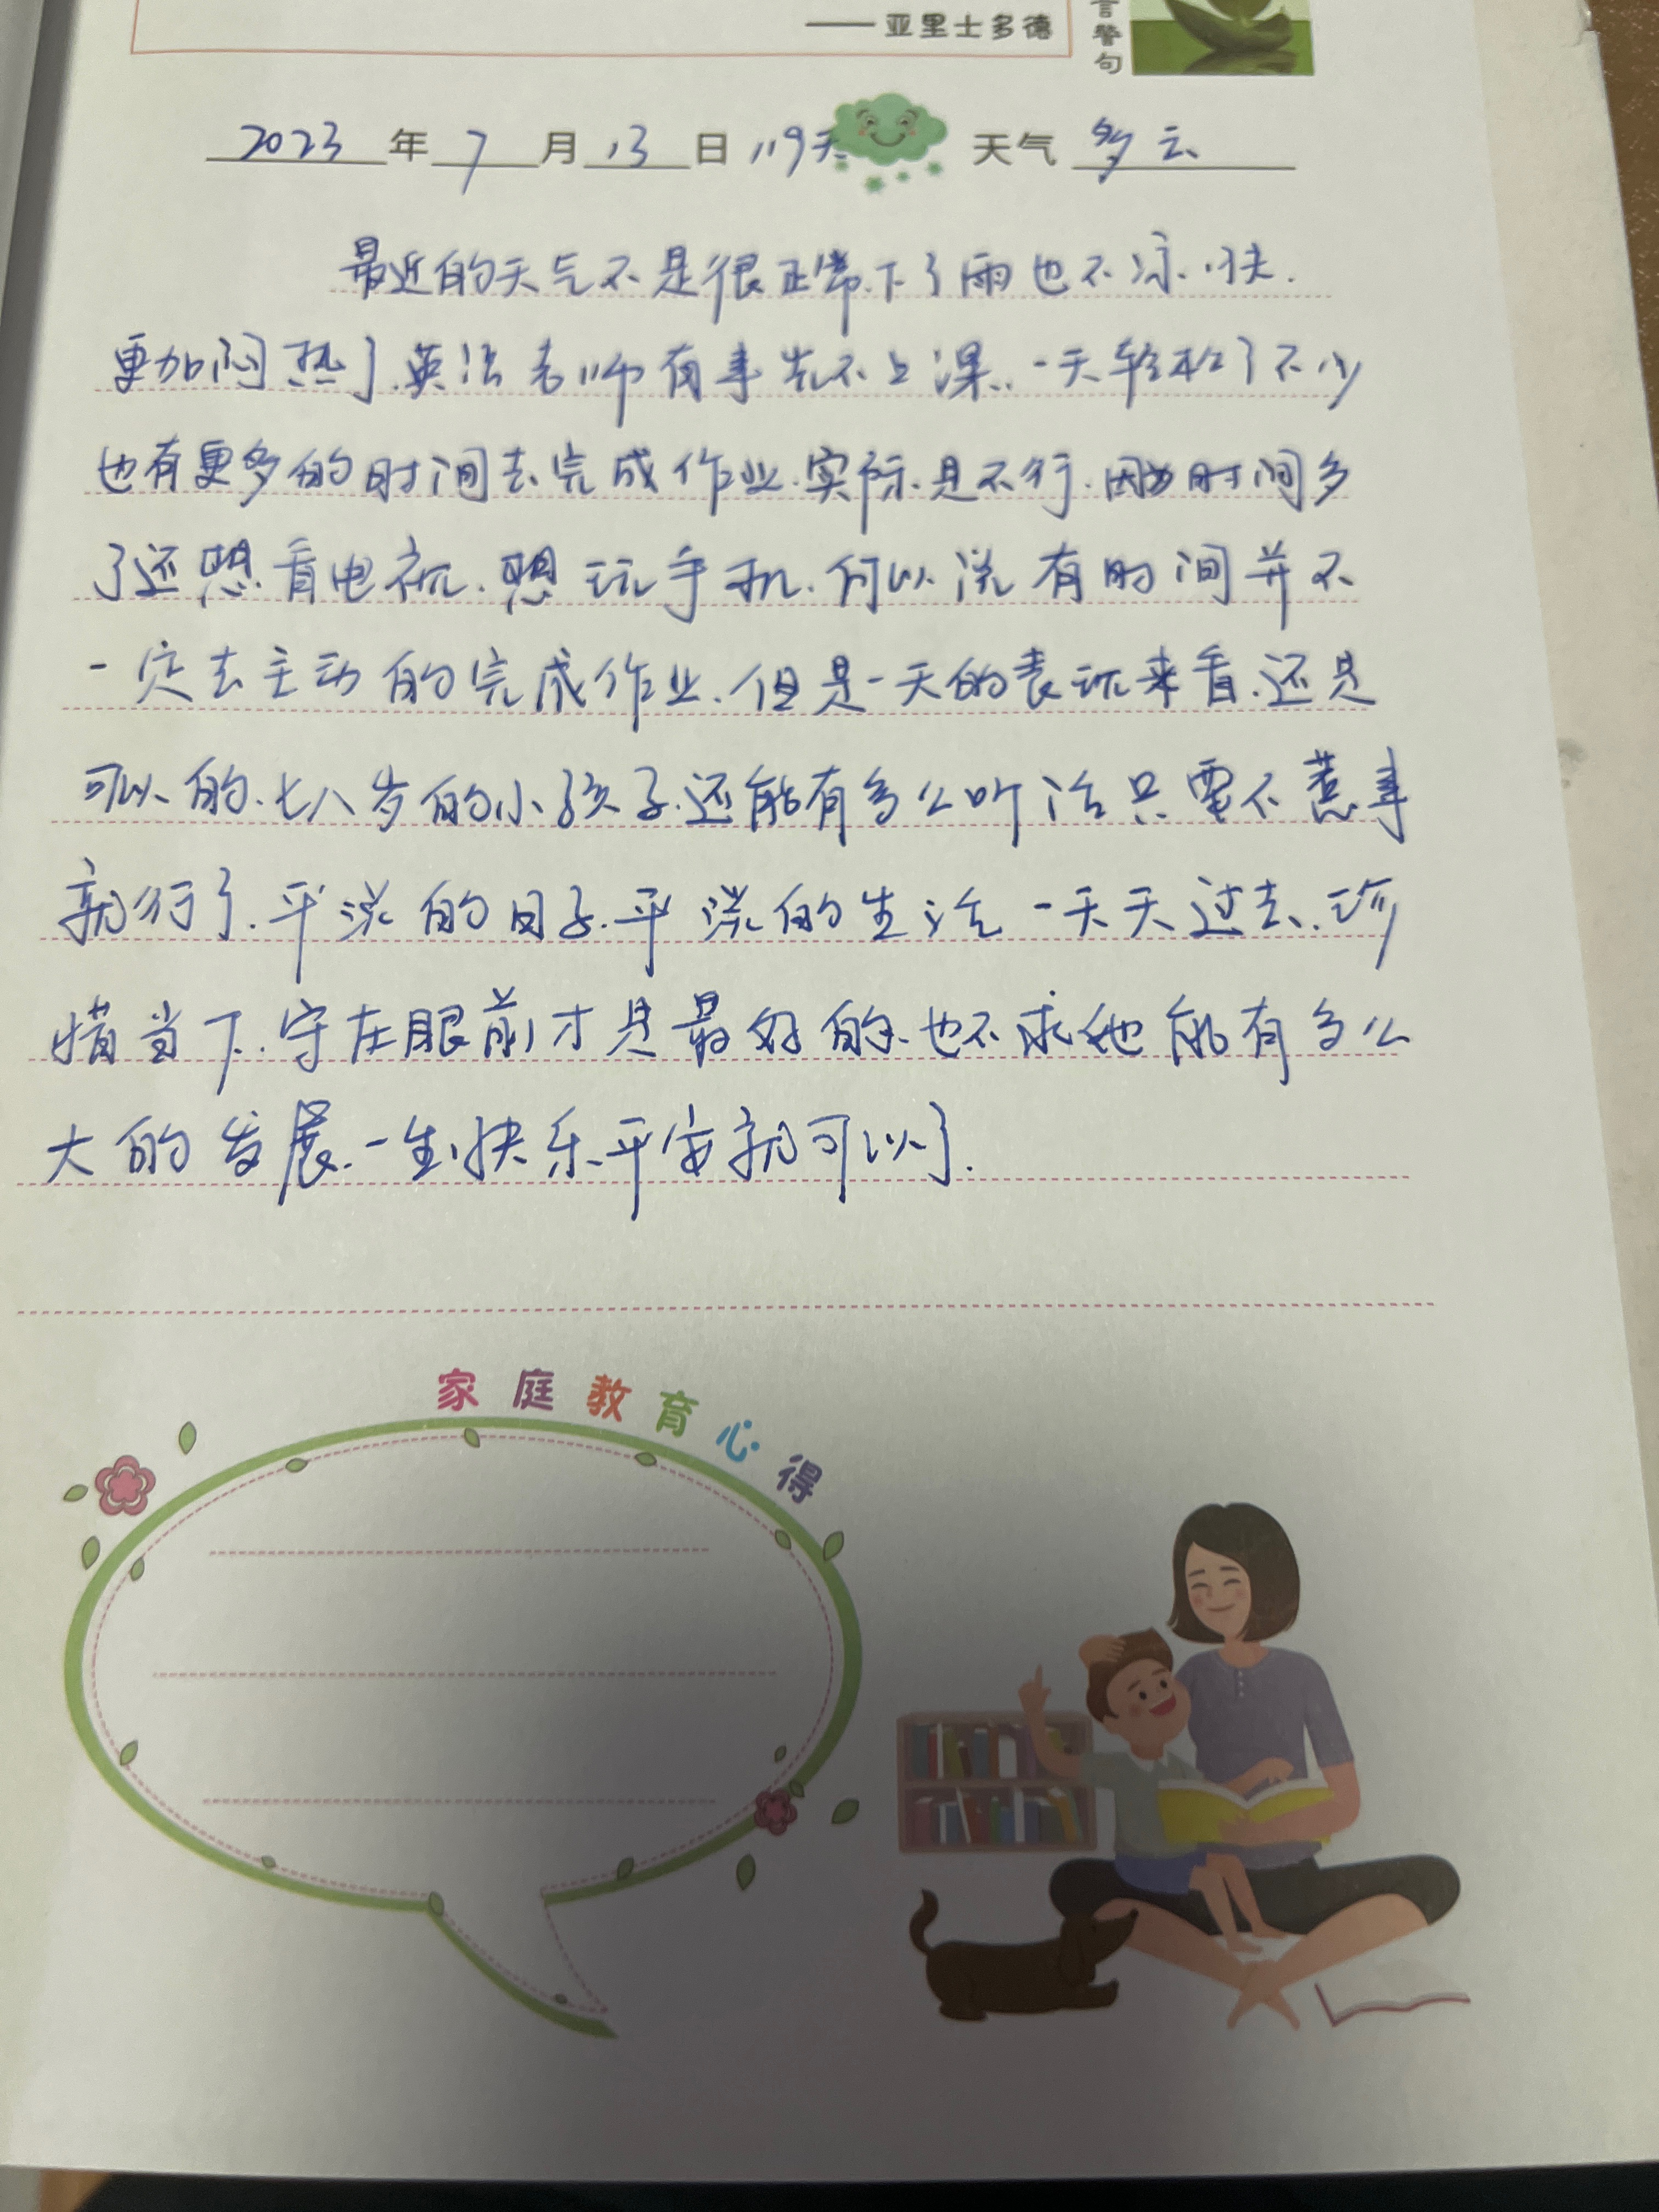 ——亚里士多德
言警句
2023年7月13日 119天 天气 多云
最近的天气不是很正常.下了雨也不凉快.
更加闷热了.英法老师有事先不上课.一天轻松了不少
也有更多的时间去完成作业.实际是不行.因为时间多
了还想看电视.想玩手机.何以说有时间并不
一定去主动的完成作业.但是一天的表现来看.还是
可以的.七八岁的小孩子.还能有多么听话只要不惹事
就行了.平淡的日子.平淡的生活一天天过去.珍
惜当下.守在眼前才是最好的.也不求他能有多么
大的发展.一生快乐平安就可以了.
家庭教育心得